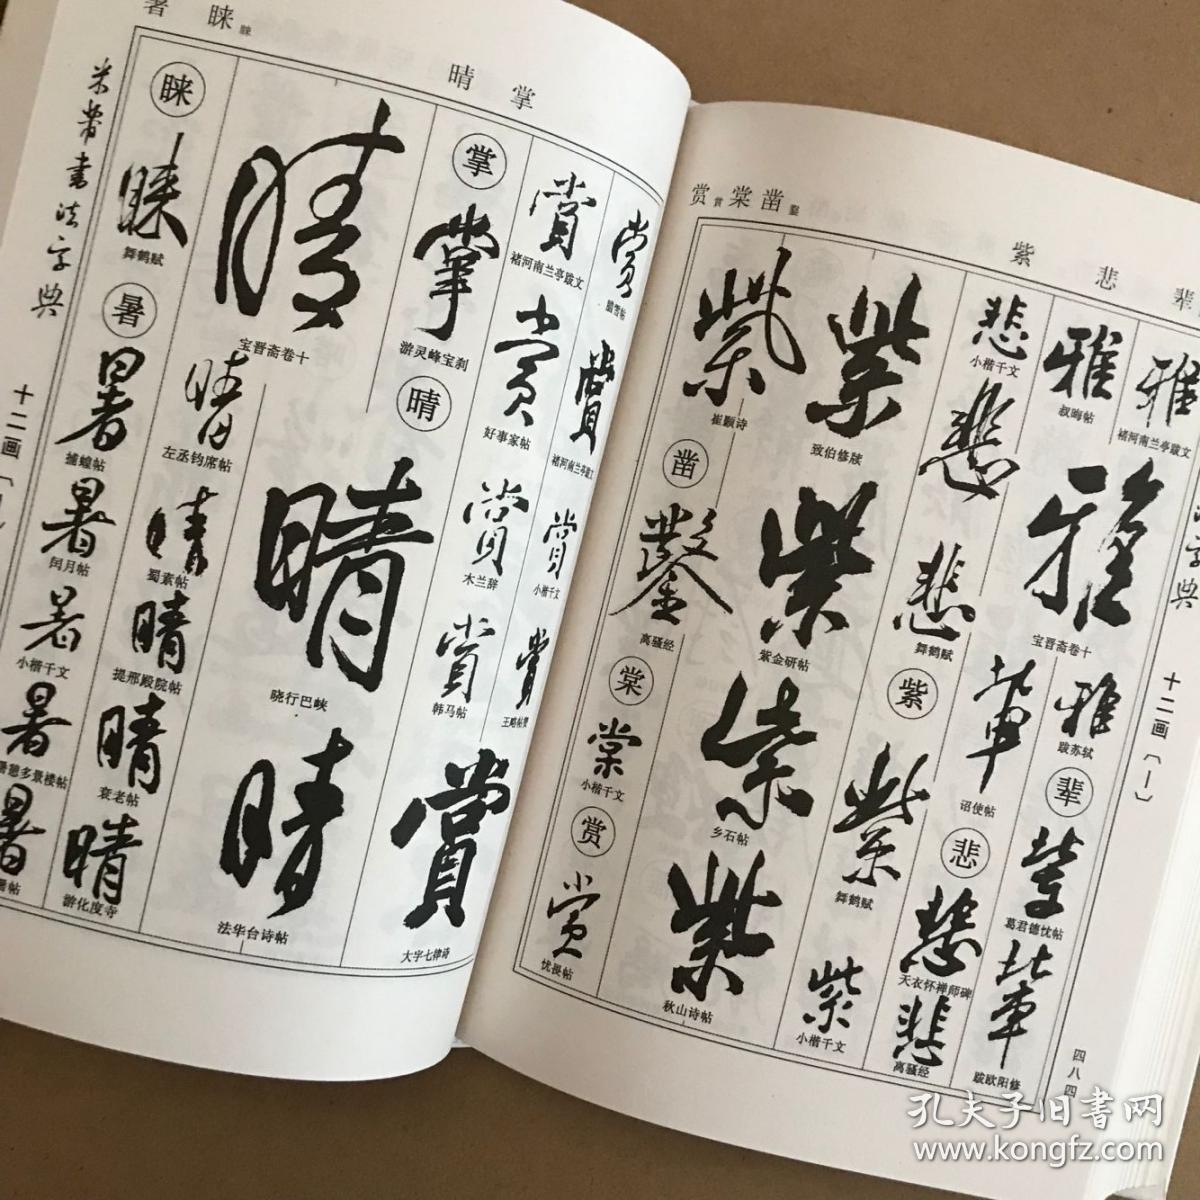 紫 悲 辈
赏 賞 棠 凿 鑿
雅
褚河南兰亭跋文
雅
叔晦帖
雅
宝晋斋卷十
雅
跋苏轼
辈
輩
葛君德忱帖
輩
跋欧阳修
悲
小楷千文
悲
悲
舞鹤赋
輩
诏使帖
悲
悲
天衣怀禅师碑
悲
离骚经
紫
紫
致伯修牍
紫
紫金研帖
紫
舞鹤赋
紫
小楷千文
紫
崔颢诗
紫
乡石帖
紫
秋山诗帖
凿
鑿
离骚经
棠
棠
小楷千文
赏
赏
忧畏帖
字典
十二画〔丨〕
四八四
晴 掌
暑 睐 睞
賞
賞
褚河南兰亭跋文
賞
小楷千文
賞
賞
褚河南兰亭跋文
賞
好事家帖
賞
木兰辞
賞
韩马帖
掌
掌
游灵峰宝刹
晴
賞
大字七律诗
晴
宝晋斋卷十
晴
晓行巴峡
晴
法华台诗帖
晴
左丞钧席帖
晴
蜀素帖
晴
提邢殿院帖
晴
衰老帖
晴
游化度寺
睐
睞
舞鹤赋
暑
暑
捕蝗帖
暑
闰月帖
暑
小楷千文
暑
暑憩多景楼帖
暑
米芾書法字典
十二画
孔夫子旧书网
www.kongfz.com